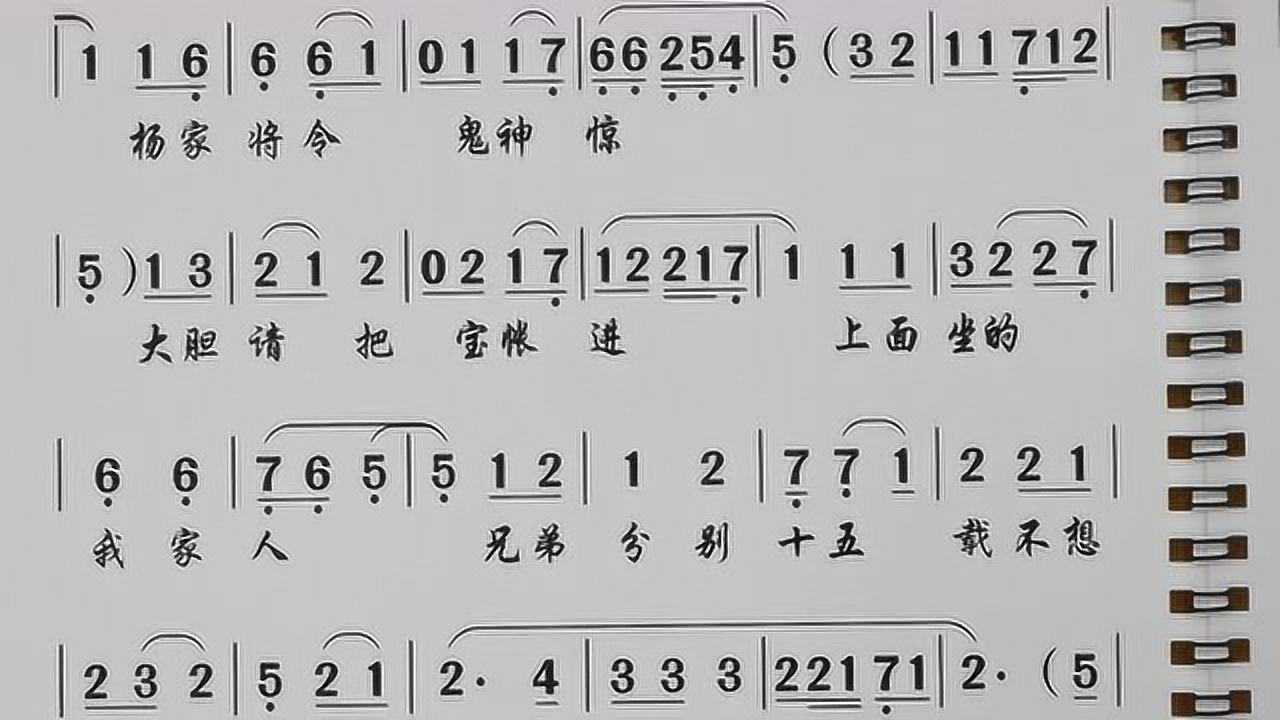 1 1 6 | 6 6 1 | 0 1 1 7 | 6 6 2 5 4 | 5 ( 3 2 | 1 1 7 1 2 |
杨家 将令 鬼神 惊
5 ) 1 3 | 2 1 2 | 0 2 1 7 | 1 2 2 2 1 7 | 1 1 1 | 3 2 2 7 |
大胆 请 把 宝帐 进 上面 坐的
6 6 | 7 6 5 | 5 1 2 | 1 2 | 7 7 1 | 2 2 1 |
我 家 人 兄弟 分 别 十五 载不想
2 3 2 | 5 2 1 | 2· 4 | 3 3 3 | 2 2 1 7 1 | 2· ( 5 |